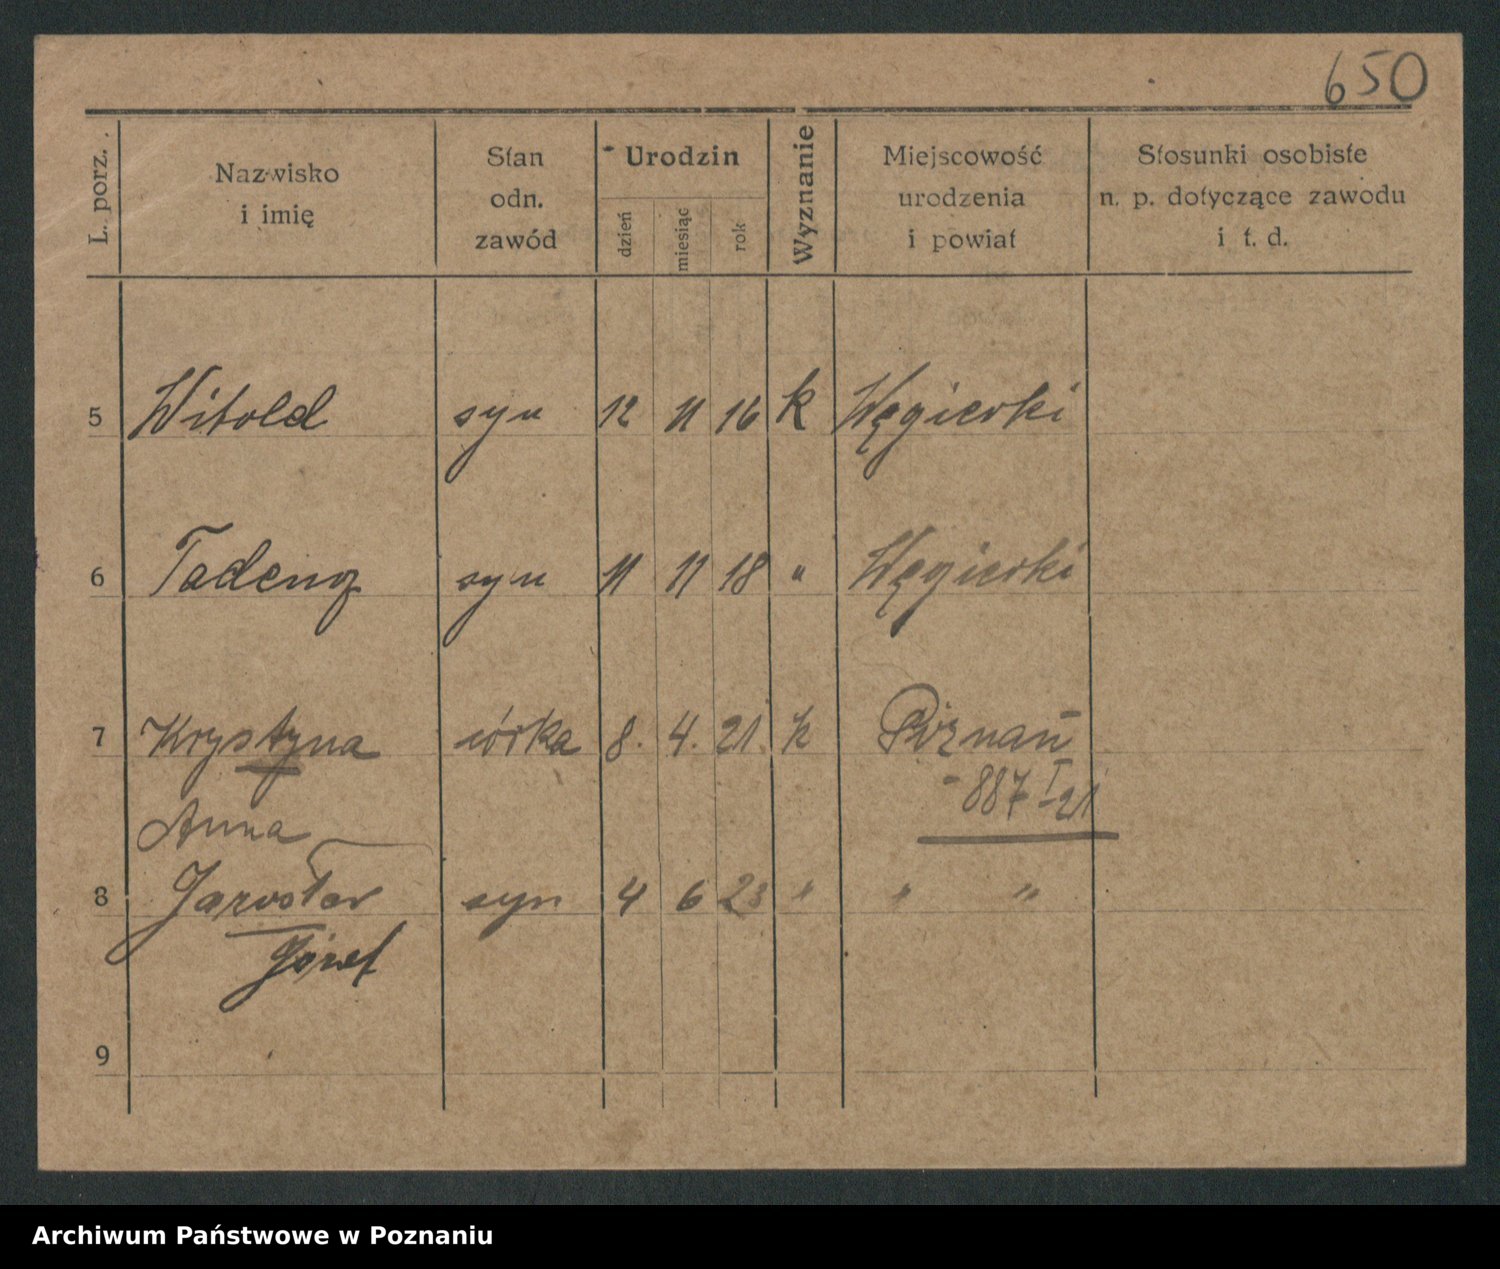 650
L. porz. Nazwisko i imię Stan odn. zawód Urodzin dzień miesiąc rok Wyznanie Miejscowość urodzenia i powiat Stosunki osobiste n. p. dotyczące zawodu i t. d.
5 Witold syn 12 11 16 k Węgierki
6 Tadeusz syn 11 11 18 " Węgierki
7 Krystyna córka 8. 4. 21. k Poznań
- 887 I - 21
Anna
8 Jarosław syn 4 6 23 " " "
Józef
9
Archiwum Państwowe w Poznaniu